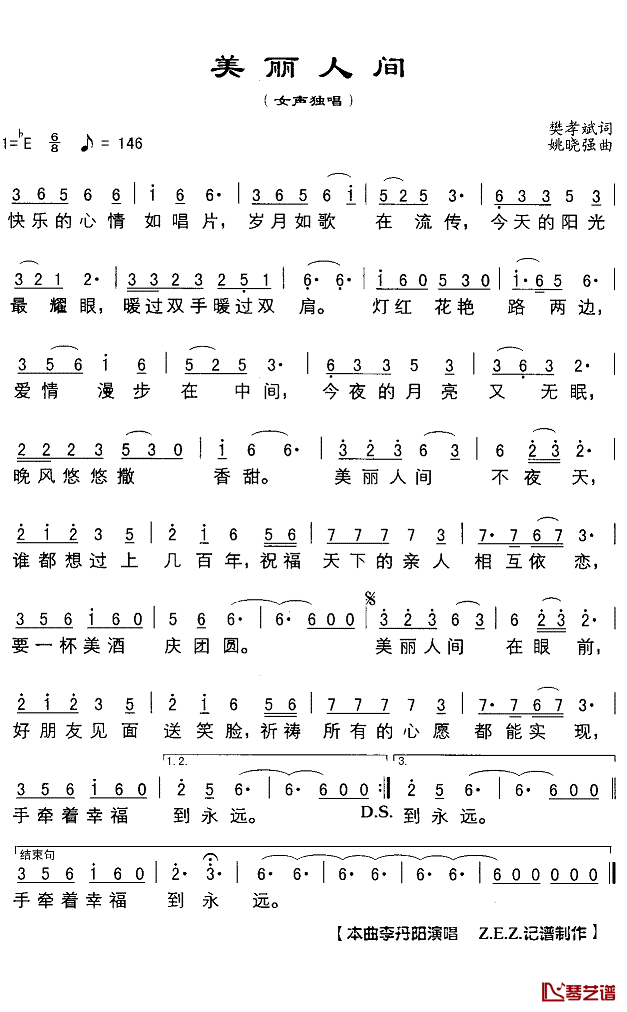 美丽人间
（女声独唱）
樊孝斌词
1=♭E 6/8 ♪=146 姚晓强曲
3 6 5 6 6 | i 6 6· | 3 6 5 6 i | 5 2 5 3· | 6 3 3 5 3 |
快乐的心情 如唱片， 岁月如歌 在 流传， 今天的阳光
3 2 1 2· | 3 3 2 3 2 5 1 | 6· 6· | i 6 0 5 3 0 | i· 6 5 6· |
最 耀眼， 暖过双手暖过双 肩。 灯红 花艳 路 两边，
3 5 6 i 6 | 5 2 5 3· | 6 3 3 5 3 | 3 6 3 2· |
爱情 漫步 在 中间， 今夜的月亮 又 无眠，
2 2 2 3 5 3 0 | i 6 6· | 3 2 3 6 3 | 6 2 3 2· |
晚风悠悠撒 香甜。 美丽人间 不夜天，
2 i 2 3 5 | 2 i 6 5 6 | 7 7 7 7 3 | 7· 7 6 7 3· |
谁都想过上 几百年，祝福 天下的亲人 相互依 恋，
3 5 6 i 6 0 | 5 6 6· | 6· 6· | 6 0 0 0 | 3 2 3 6 3 | 6 2 3 2· |
要一杯美酒 庆团圆。 美丽人间 在眼前，
2 i 2 3 5 | 2 i 6 5 6 | 7 7 7 7 3 | 7· 7 6 7 3· |
好朋友见面 送笑脸，祈祷 所有的心愿 都能实现，
1. 2. 3.
3 5 6 i 6 0 | 2 5 6· | 6· 6· | 6 0 0 0 :| 2 5 6· | 6· 6· | 6 0 0 0 |
手牵着幸福 到永远。 D.S. 到永远。
结束句
3 5 6 i 6 0 | 2· 3· | 6· 6· | 6· 6· | 6· 6· | 6 0 0 0 0 ‖
手牵着幸福 到 永 远。
【本曲李丹阳演唱 Z.E.Z.记谱制作】
琴艺谱